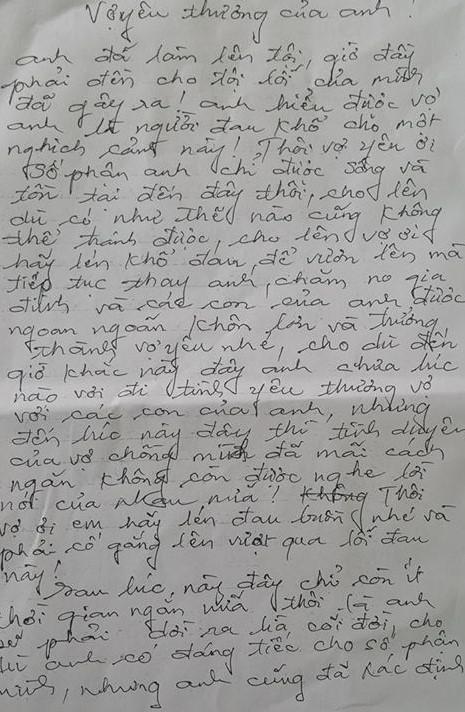 Vợ yêu thương của anh!
anh đã làm lên tội, giờ đây
phải đền cho tội lỗi của mình
đã gây ra! anh hiểu được vợ
anh là người đau khổ cho một
nghịch cảnh này! Thôi vợ yêu ơi
Số phận anh chỉ được sống và
tồn tại đến đây thôi, cho lên
dù có như thế nào cũng không
thể tránh được, cho lên vợ ơi
hãy lén khổ đau, để vươn lên mà
tiếp tục thay anh, chăm no gia
đình và các con của anh được
ngoan ngoãn khôn lớn và trưởng
thành vợ yêu nhé, cho dù đến
giờ khắc này đây anh chưa lúc
nào vơi đi tình yêu thương vợ
với các con của anh, nhưng
đến lúc này đây thì tình duyên
của vợ chồng mình đã mãi cách
ngăn không còn được nghe lời
nói của nhau nữa! Thôi
vợ ơi em hãy lén đau buồn nhé và
phải cố gắng lên vượt qua lỗi đau
này!
Sau lúc này đây chỉ còn ít
thời gian ngắn nữa thôi là anh
sẽ phải dời ra cõi đời, cho
dù anh có đáng tiếc cho số phận
mình, nhưng anh cũng đã xác định